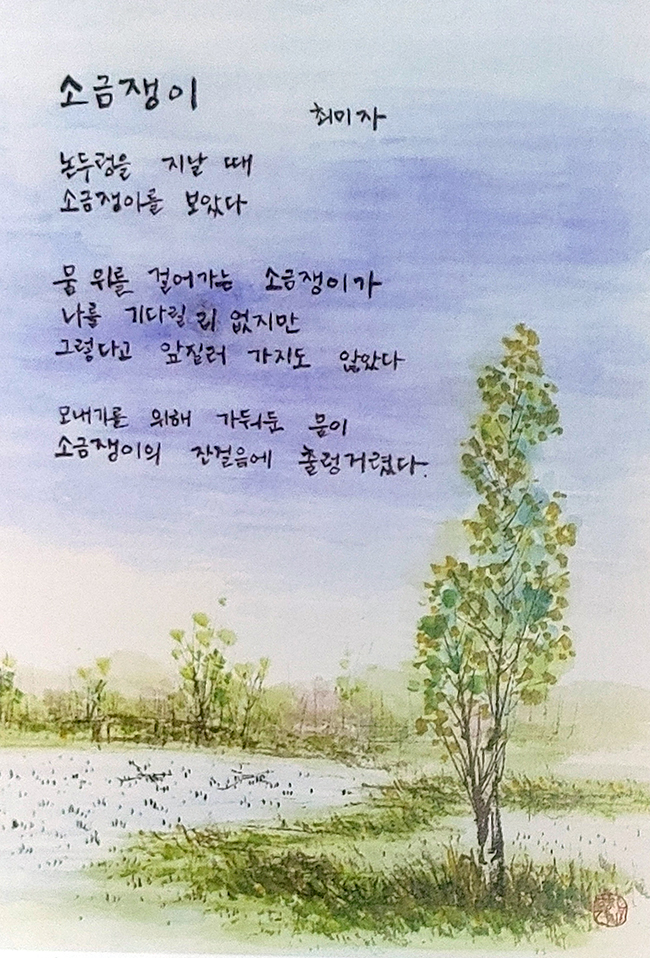 소금쟁이
최미자
논두렁을 지날 때
소금쟁이를 보았다
물 위를 걸어가는 소금쟁이가
나를 기다릴 리 없지만
그렇다고 앞질러 가지도 않았다
모내기를 위해 가둬둔 물이
소금쟁이의 잔걸음에 출렁거렸다.